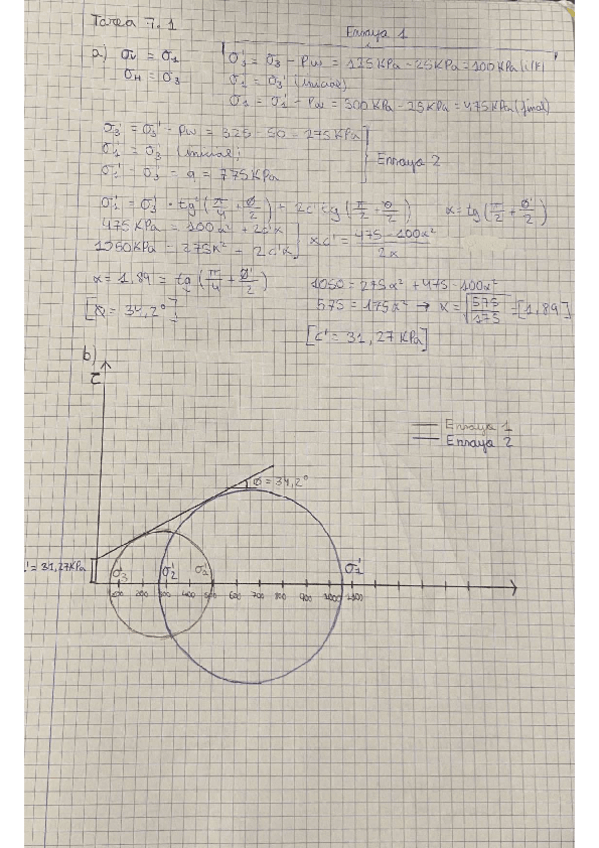 Tarea T. 1
Ensayo 1
a) σv = σ1
σH = σ3
σ3' = σ3 - Pw = 125 KPa - 25 KPa = 100 KPa
σ1 = σ3' (inicial)
σ1 = σ1' - Pw = 500 KPa - 25 KPa = 475 KPa (final)
σ3' = σ3' - Pw = 325 - 50 = 275 KPa
σ1' = σ3' (inicial)
Ensayo 2
σ1' - σ3' = q = 775 KPa
σ1' = σ3' · tg²(π/4 + ø/2) + 2c' tg(π/2 + ø/2)
α = tg(π/2 + ø'/2)
475 KPa = 100α² + 2c'α
1050 KPa = 275α² - 2c'α
c' = 475 - 100α² / 2α
α = 1,89 = tg(π/4 + ø'/2)
1050 = 275α² + 475 - 100α²
[ø = 34,2°]
575 = 175α² → α = √575/175 = [1,89]
[c' = 31,27 KPa]
b)
τ
Ensayo 1
Ensayo 2
ø = 34,2°
' = 31,27 KPa
σ3' σ3' σ1' σ1'
100 200 300 400 500 600 700 800 900 1000 1100